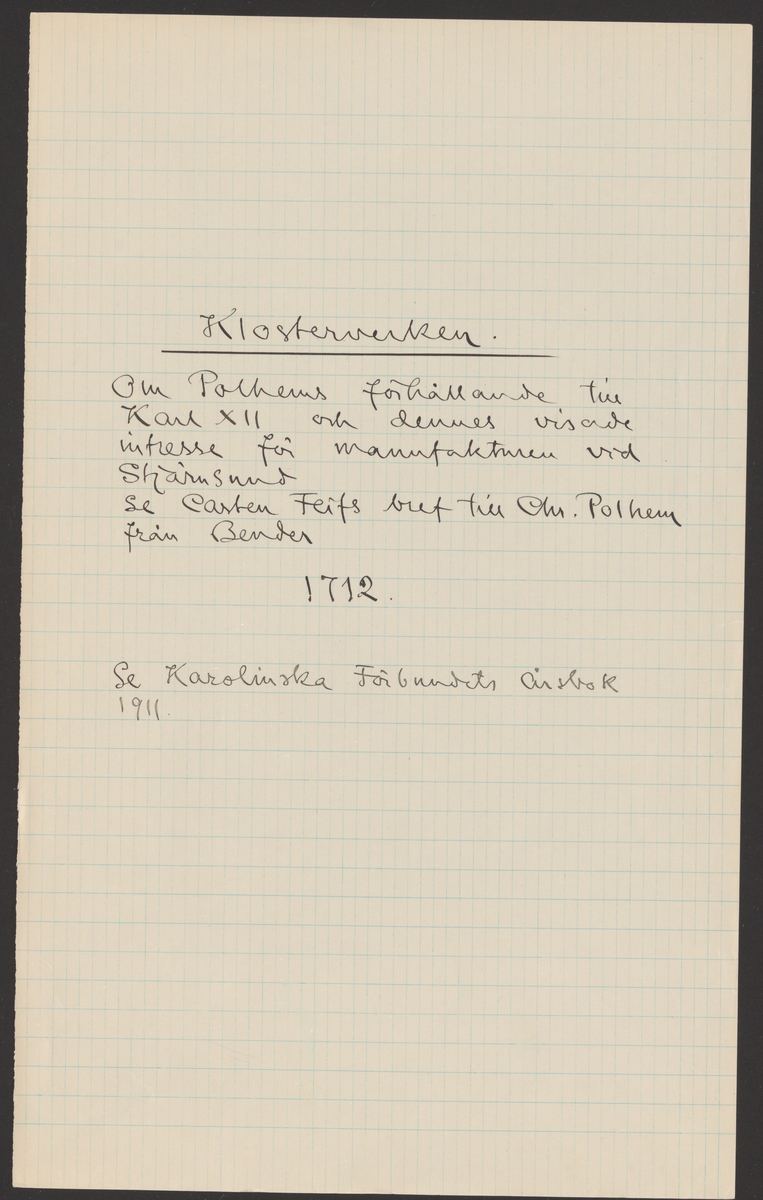 Klosterverken.
Om Polhems förhållande till
Karl XII och dennes visade
intresse för manufakturen vid
Stjärnsund
Se Carsten Feifs bref till Chr. Polhem
från Bender
1712.
Se Karolinska Förbundets Årsbok
1911.